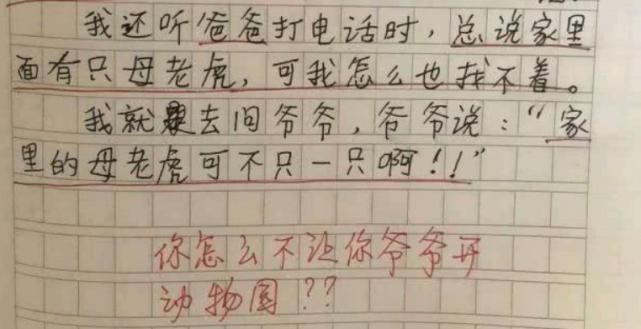 我还听爸爸打电话时，总说家里
面有只母老虎，可我怎么也找不着。
我就去问爷爷，爷爷说：“家
里的母老虎可不只一只啊！！”
你怎么不让你爷爷开
动物园？？